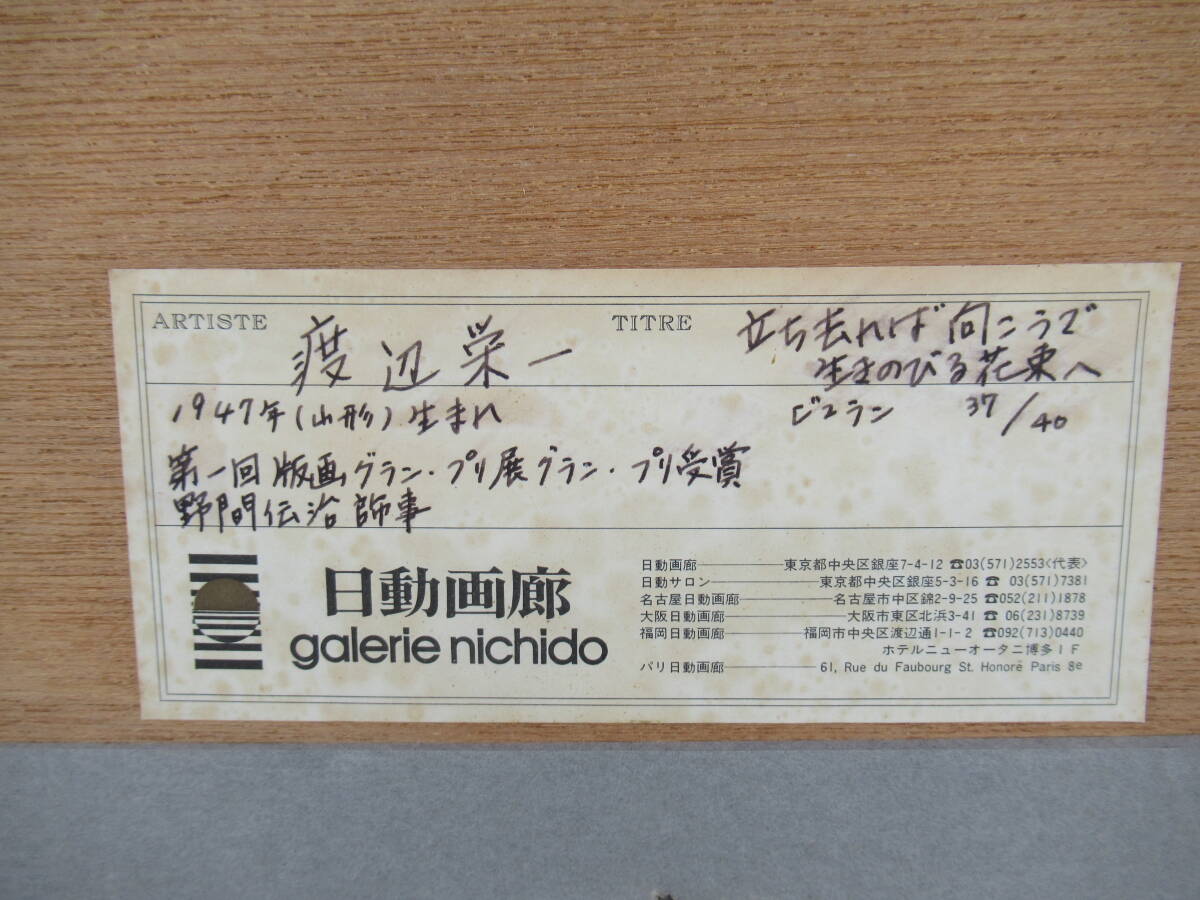 ARTISTE
渡辺栄一
TITRE
立ち去れば向こうで
生きのびる花束へ
1947年(山形)生まれ
ビュラン 37/40
第一回版画グラン・プリ展グラン・プリ受賞
野間伝治師事
日動画廊
galerie nichido
日動画廊 東京都中央区銀座7-4-12 ☎03(571)2553<代表>
日動サロン 東京都中央区銀座5-3-16 ☎ 03(571)7381
名古屋日動画廊 名古屋市中区錦2-9-25 ☎052(211)1878
大阪日動画廊 大阪市東区北浜3-41 ☎ 06(231)8739
福岡日動画廊 福岡市中央区渡辺通1-1-2 ☎092(713)0440
ホテルニューオータニ博多1F
パリ日動画廊 61, Rue du Faubourg St. Honoré Paris 8e